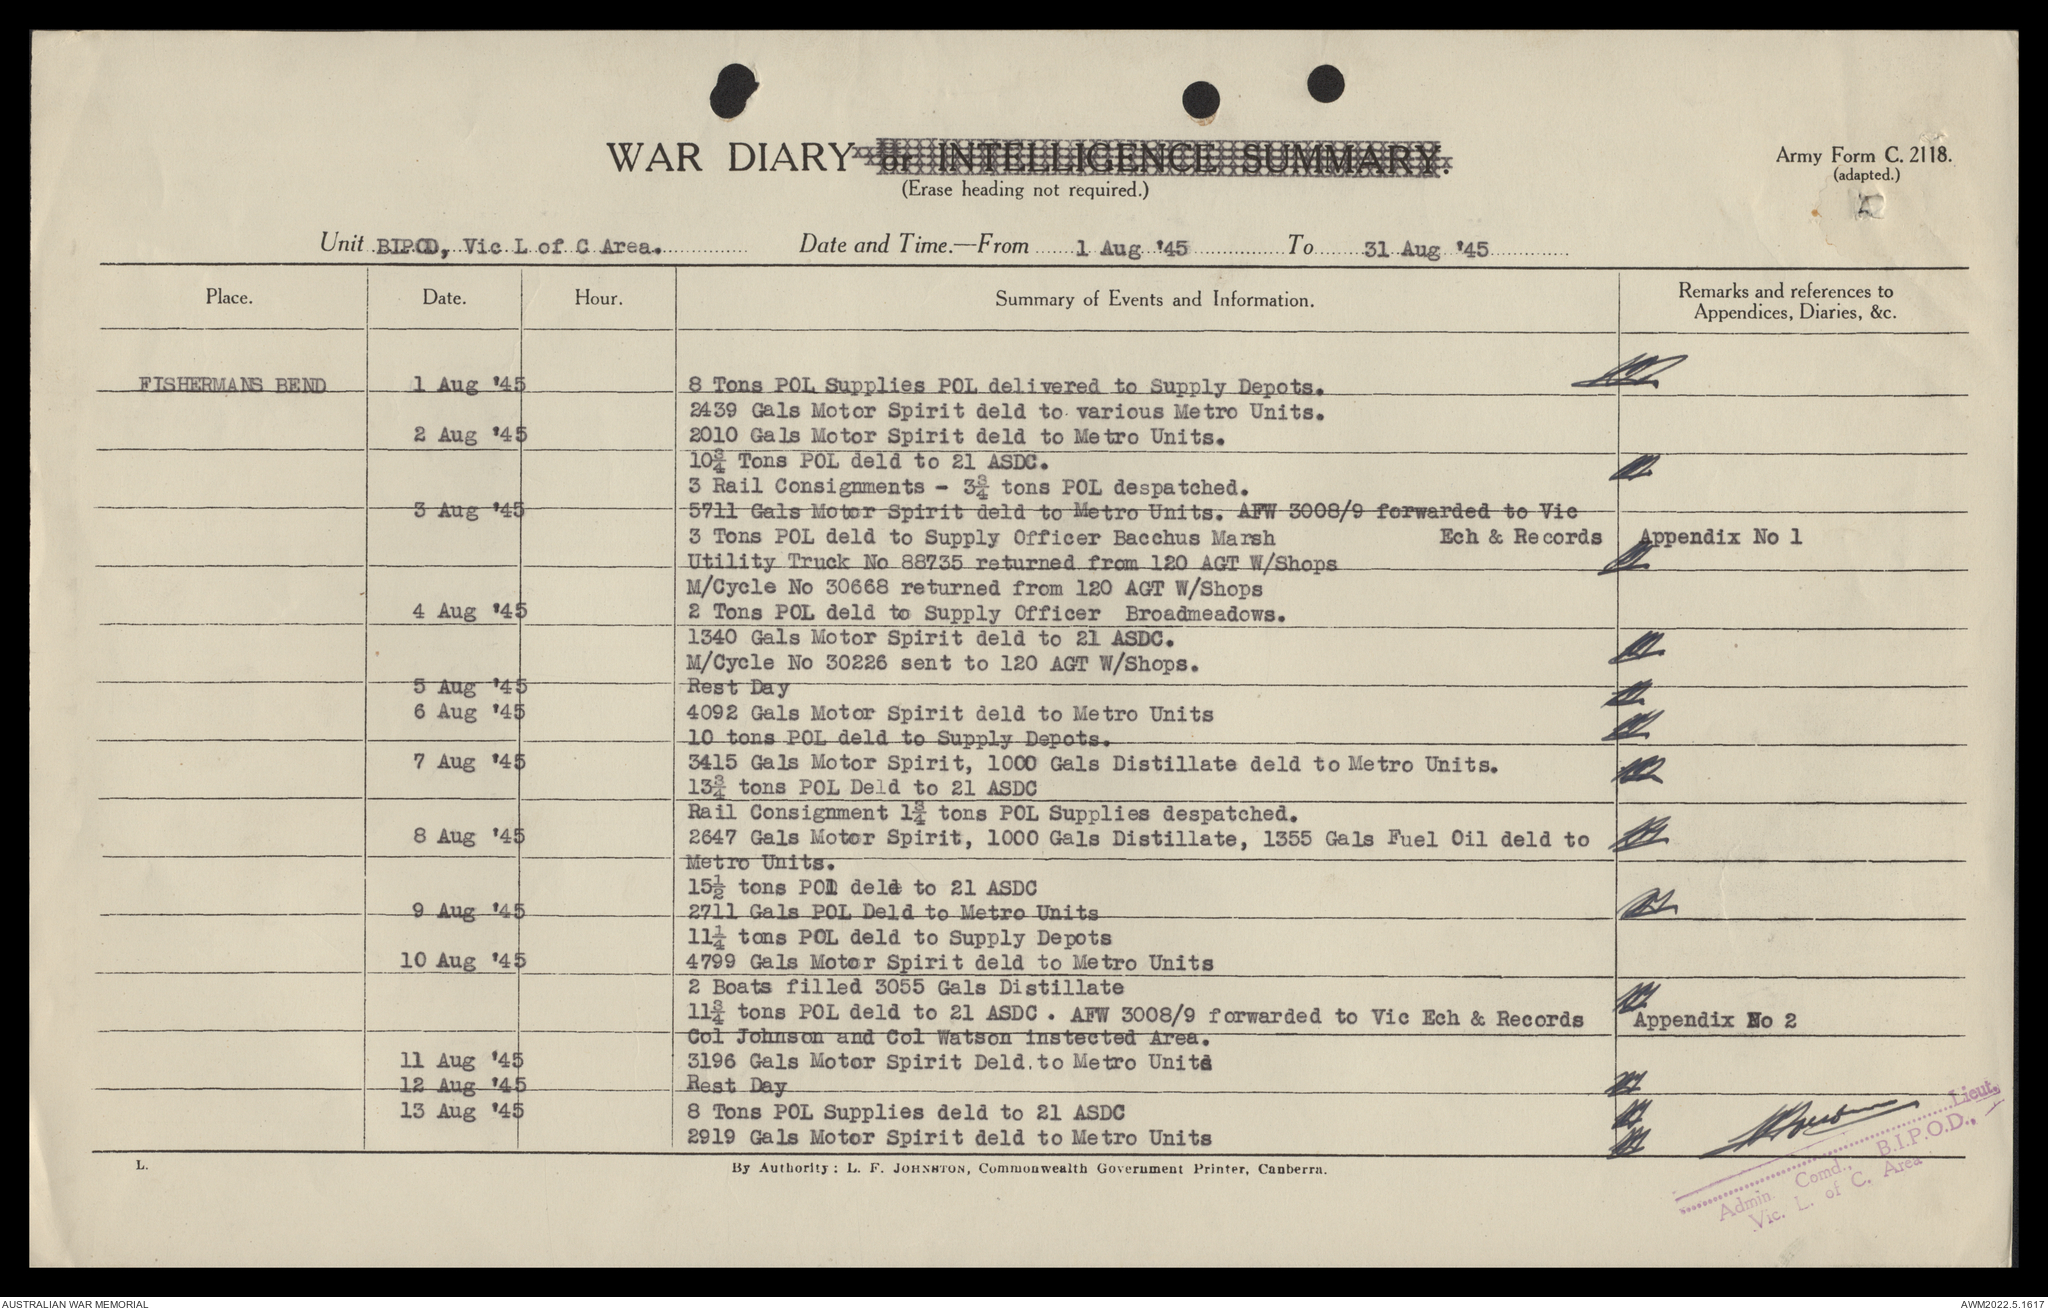 WAR DIARY or INTELLIGENCE SUMMARY.
(Erase heading not required.)
Army Form C. 2118.
(adapted.)
Unit BIPOD, Vic L of C Area. Date and Time.—From 1 Aug '45 To 31 Aug '45
Place. Date. Hour. Summary of Events and Information. Remarks and references to Appendices, Diaries, &c.
FISHERMANS BEND 1 Aug '45 8 Tons POL Supplies POL delivered to Supply Depots.
2439 Gals Motor Spirit deld to various Metro Units.
2 Aug '45 2010 Gals Motor Spirit deld to Metro Units.
10¾ Tons POL deld to 21 ASDC.
3 Rail Consignments - 3¾ tons POL despatched.
3 Aug '45 5711 Gals Motor Spirit deld to Metro Units. AFW 3008/9 forwarded to Vic
3 Tons POL deld to Supply Officer Bacchus Marsh Ech & Records Appendix No 1
Utility Truck No 88735 returned from 120 AGT W/Shops
M/Cycle No 30668 returned from 120 AGT W/Shops
4 Aug '45 2 Tons POL deld to Supply Officer Broadmeadows.
1340 Gals Motor Spirit deld to 21 ASDC.
M/Cycle No 30226 sent to 120 AGT W/Shops.
5 Aug '45 Rest Day
6 Aug '45 4092 Gals Motor Spirit deld to Metro Units
10 tons POL deld to Supply Depots.
7 Aug '45 3415 Gals Motor Spirit, 1000 Gals Distillate deld to Metro Units.
13¾ tons POL Deld to 21 ASDC
Rail Consignment 1¾ tons POL Supplies despatched.
8 Aug '45 2647 Gals Motor Spirit, 1000 Gals Distillate, 1355 Gals Fuel Oil deld to
Metro Units.
15½ tons POL deld to 21 ASDC
9 Aug '45 2711 Gals POL Deld to Metro Units
11¼ tons POL deld to Supply Depots
10 Aug '45 4799 Gals Motor Spirit deld to Metro Units
2 Boats filled 3055 Gals Distillate
11¾ tons POL deld to 21 ASDC . AFW 3008/9 forwarded to Vic Ech & Records Appendix No 2
Col Johnson and Col Watson instected Area.
11 Aug '45 3196 Gals Motor Spirit Deld.to Metro Units
12 Aug '45 Rest Day
13 Aug '45 8 Tons POL Supplies deld to 21 ASDC
2919 Gals Motor Spirit deld to Metro Units
Lieut.
Admin. Comd., B.I.P.O.D.,
Vic. L. of C. Area
L. By Authority: L. F. JOHNSTON, Commonwealth Government Printer, Canberra.
AUSTRALIAN WAR MEMORIAL AWM2022.5.1617